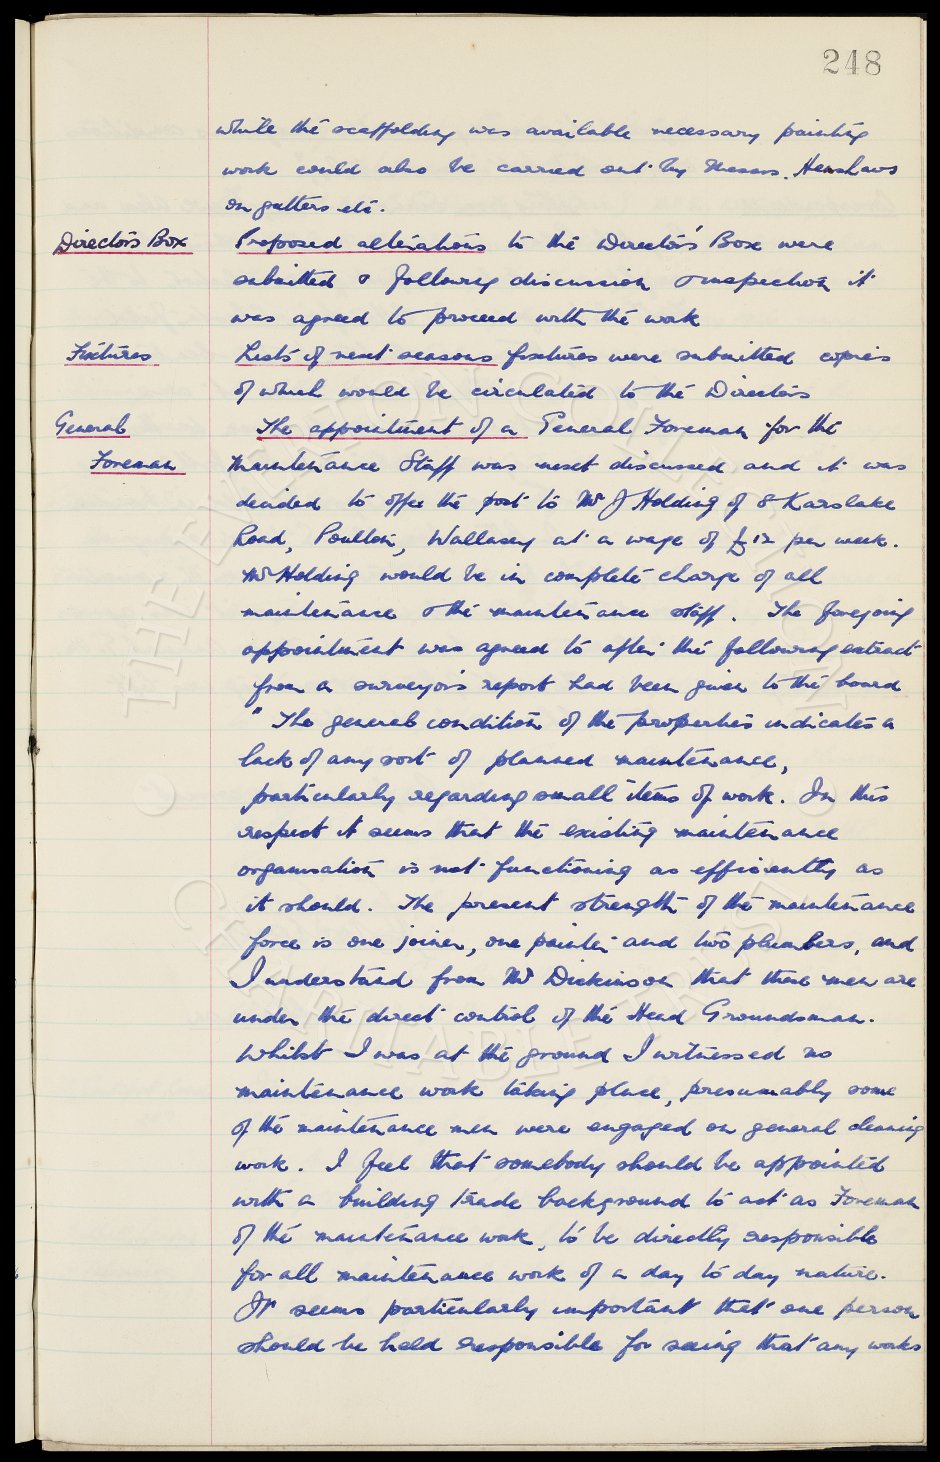 248
while the scaffolding was available necessary painting
work could also be carried out by Messrs. Henshaws
on gutters etc.
Directors Box Proposed alterations to the Director's Box were
submitted & following discussion & inspection it
was agreed to proceed with the work
Fixtures Lists of next seasons fixtures were submitted copies
of which would be circulated to the Directors
General The appointment of a General Foreman for the
Foreman maintenance Staff was next discussed and it was
decided to offer the post to Mr J Holding of 8 Karslake
Road, Poulton, Wallasey at a wage of £12 per week.
Mr Holding would be in complete charge of all
maintenance & the maintenance staff. The foregoing
appointment was agreed to after the following extract
from a surveyor's report had been given to the board
" The general condition of the properties indicates a
lack of any sort of planned maintenance,
particularly regarding small items of work. In this
respect it seems that the existing maintenance
organisation is not functioning as efficiently as
it should. The present strength of the maintenance
force is one joiner, one painter and two plumbers, and
I understand from Mr Dickinson that these men are
under the direct control of the Head Groundsman.
Whilst I was at the ground I witnessed no
maintenance work taking place, presumably some
of the maintenance men were engaged on general cleaning
work. I feel that somebody should be appointed
with a building trade background to act as Foreman
of the maintenance work, to be directly responsible
for all maintenance work of a day to day nature.
It seems particularly important that one person
should be held responsible for seeing that any works
THE EVERTON COLLECTION
CHARITABLE TRUST